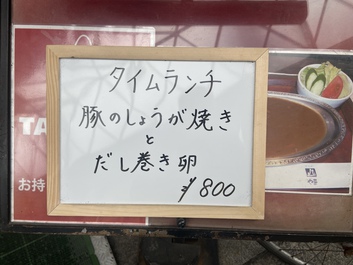 タイムランチ
豚のしょうが焼き
と
だし巻き卵
¥800
TA
お持